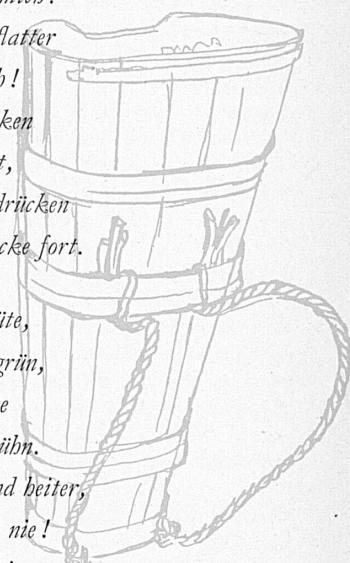 flatter
!
ken
t,
drücken
cke fort.
üte,
grün,
e
ühn.
nd heiter,
nie!